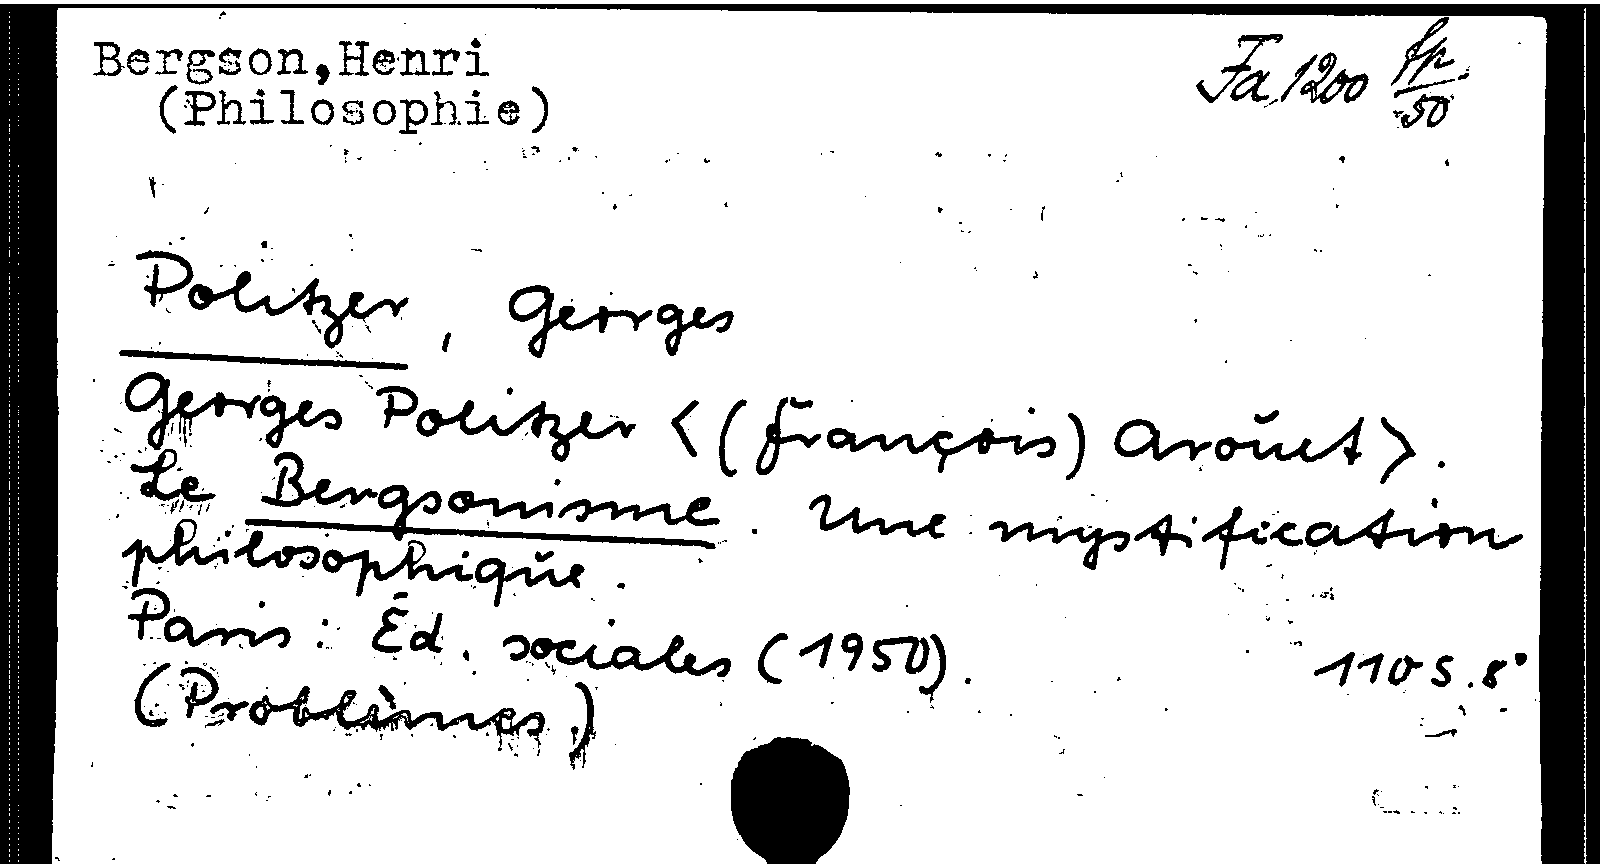 Bergson,Henri
(Philosophie)
Fa 1200 fp/50
Politzer, Georges
Georges Politzer <(François) Arouet>.
Le Bergsonisme. Une mystification
philosophique.
Paris: Éd. sociales (1950).
110 S. 8°
(Problèmes.)